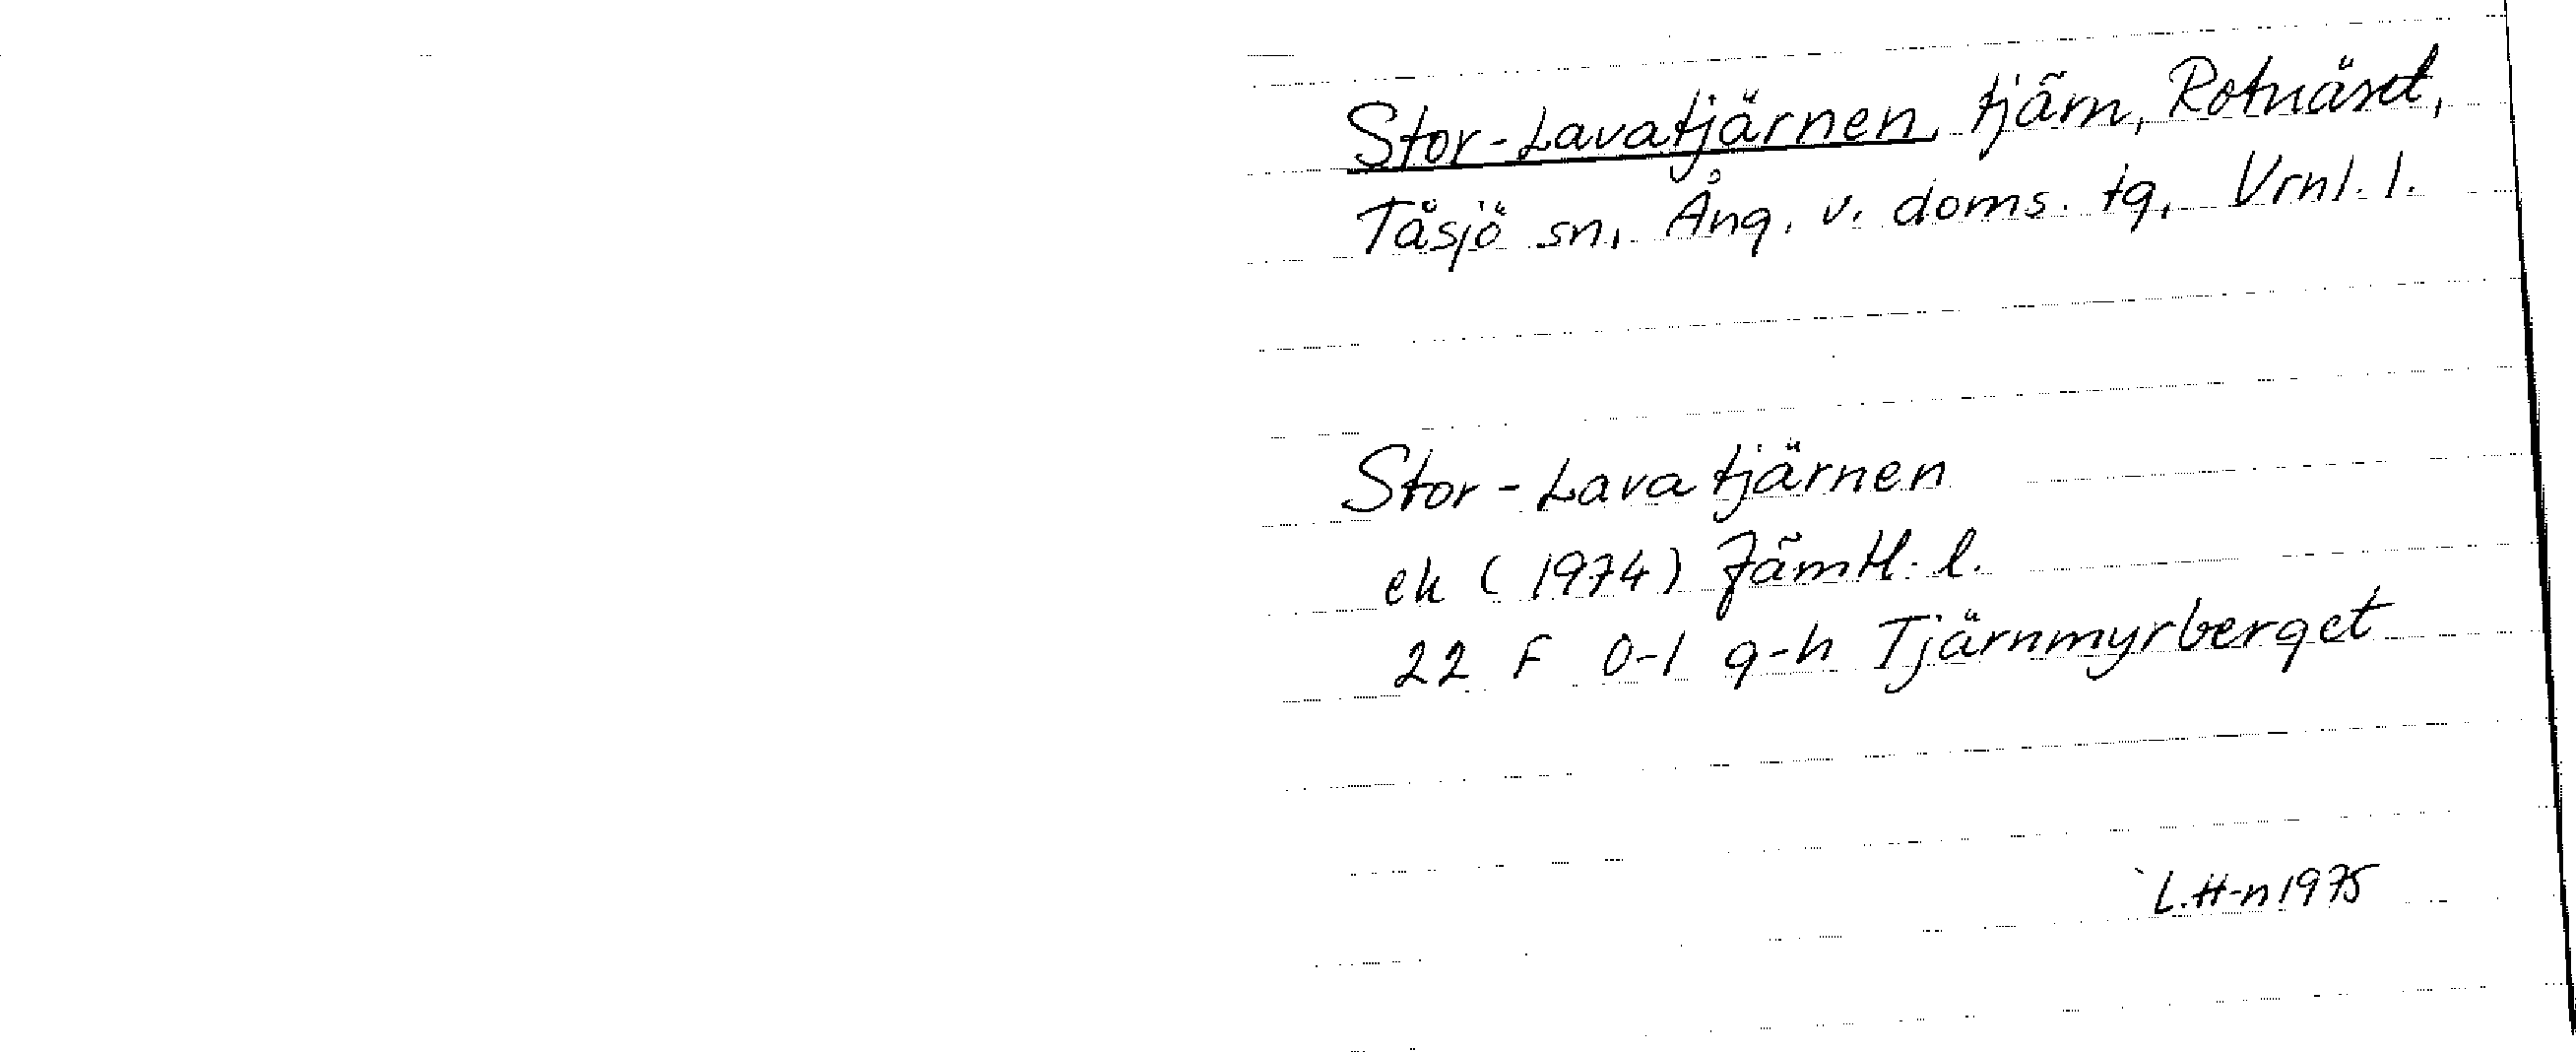 Stor-Lavatjärnen, tjärn, Rotnäset,
Tåsjö sn, Ång. v. doms. tg, Vrnl. l.
Stor-Lavatjärnen
ek (1974) Jämtl. l.
22 F 0-1 g-h Tjärnmyrberget
L.H-n 1975